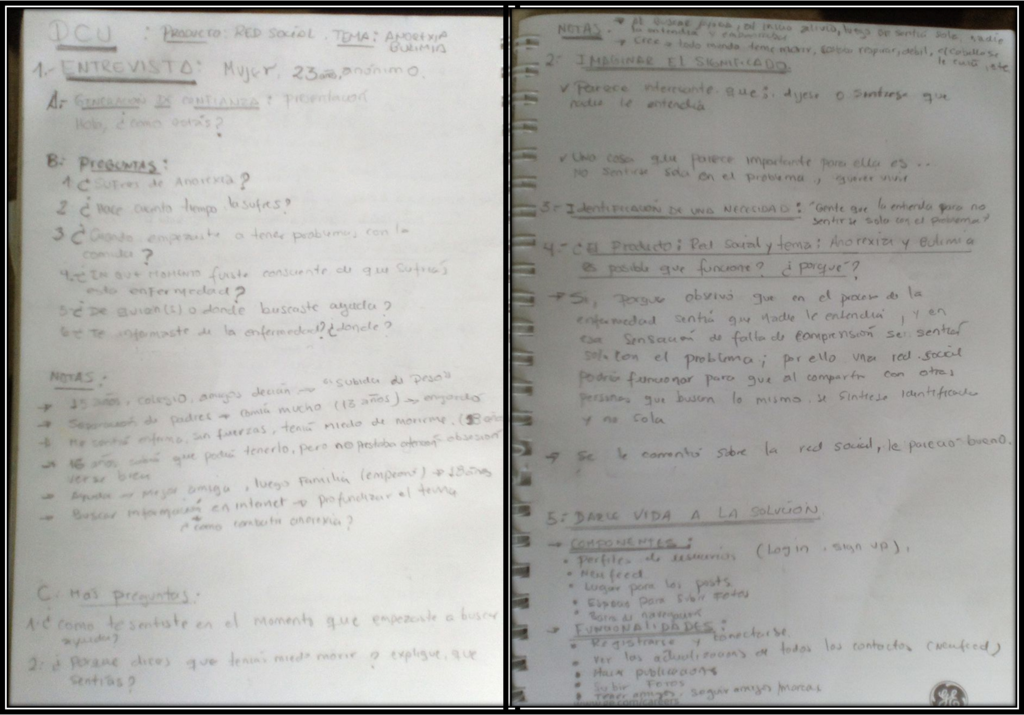 DCU : PRODUCTO: RED SOCIAL. TEMA: ANOREXIA
BULIMIA
1.- ENTREVISTA: Mujer, 23 años, anónimo.
A.- GENERACIÓN DE CONFIANZA: Presentación
Hola, ¿cómo estás?
B.- PREGUNTAS:
1.¿Sufres de Anorexia?
2 ¿Hace cuanto tiempo la sufres?
3 ¿Cuando empezaste a tener problemas con la
comida?
4.-¿En que momento fuiste consciente de que sufrías
esta enfermedad?
5.¿De quien(s) o donde buscaste ayuda?
6.¿Te informaste de la enfermedad? ¿donde?
NOTAS:
15 años, colegio, amigos decían "subida de peso"
Separación de padres → comía mucho (13 años) → engordó
Me sentí enferma, sin fuerzas, tenía miedo de morirme, (18 años
16 años, que podía tenerlo, pero no
verse bien
Ayuda → mejor amiga, luego familia (empezar) → 18 años
Buscar información en internet → profundizar el tema
¿cómo combatir anorexia?
C. Mas preguntas.
1.¿Como te sentiste en el momento que empezaste a buscar
ayuda?
2.¿Porque dices que tenías miedo morir? explique, que
sentías?
NOTAS. Al buscar ayuda, al inicio alivio, luego se sentía sola, nadie
la entendía y
todo mundo, temía morir, respirar, débil, el cabello se
le caía, etc
2.- IMAGINAR EL SIGNIFICADO
✓ Parece interesante que: dijese o sentirse que
nadie le entendía
✓ Una cosa que parece importante para ella es ...
no sentirse sola en el problema, querer vivir
3.- Identificación de una necesidad: "Gente que la entienda para no
sentirse sola con el problema"
4.- ¿El Producto: Red Social y tema: Anorexia y Bulimia
es posible que funcione? ¿porqué?
→ Si, porque observo que en el proceso de la
enfermedad sentía que nadie le entendía, y en
esa sensación de falta de comprensión se sentía
sola con el problema; por ello una red social
podría funcionar para que al compartir con otras
personas que buscan lo mismo se sintiese identificada
y no sola
→ Se le comentó sobre la red social, le pareció bueno.
5.- DARLE VIDA A LA SOLUCIÓN
→ COMPONENTES:
• Perfiles de usuarios (Login, sign up),
• Newfeed
• Lugar para los posts
• Espacio para subir fotos
• Barra de navegación
→ FUNCIONALIDADES:
• Registrarse y conectarse.
• Ver las actualizaciones de todos los contactos (Newfeed)
• Hacer publicaciones
• Subir Fotos
• Tener amigos, seguir amigos/marcas